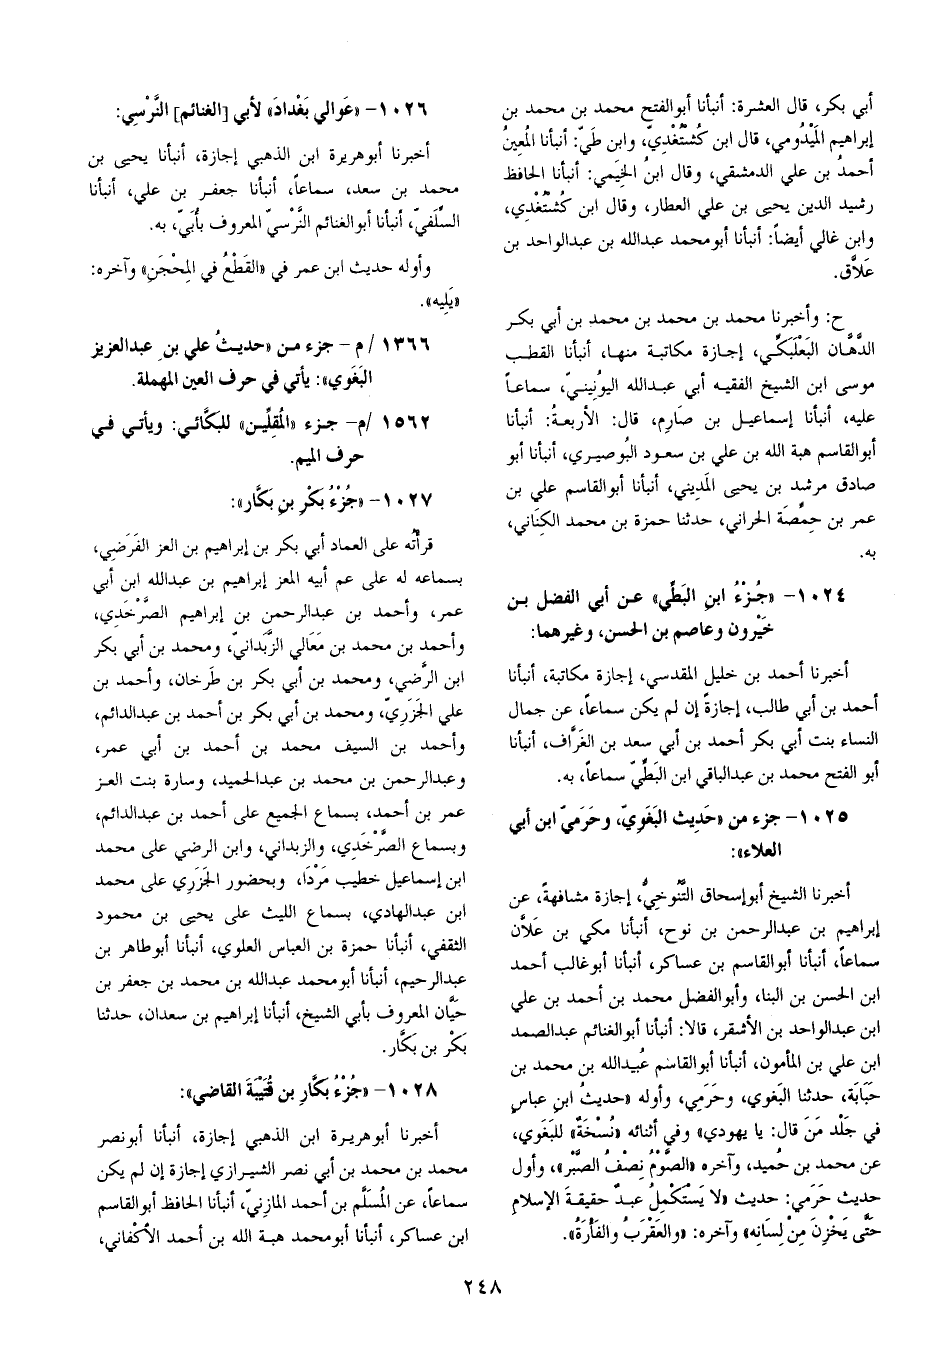 أبي بكر، قال العشرة: أنبأنا أبوالفتح محمد بن محمد بن
إبراهيم المَيْدُومي، قال ابن كُشْتُغْدِيّ، وابن طَيّ: أنبأنا المُعِينُ
أحمدُ بن علي الدمشقي، وقال ابنُ الخِيَمي: أنبأنا الحافظ
رشيد الدين يحيى بن علي العطار، وقال ابن كُشْتُغْدِي،
وابن غالي أيضاً: أنبأنا أبومحمد عبدالله بن عبدالواحد بن
عَلاَّق.
ح: وأخبرنا محمد بن محمد بن محمد بن أبي بكر
الدَّهَّان البَعْلَبَكِّي، إجازة مكاتبة منها، أنبأنا القطب
موسى ابن الشيخ الفقيه أبي عبدالله اليُونِينيّ، سماعاً
عليه، أنبأنا إسماعيل بن صَارِم، قال: الأربعةُ: أنبأنا
أبوالقاسم هبة الله بن علي بن سعود البُوصيري، أنبأنا أبو
صادق مرشد بن يحيى المَديني، أنبأنا أبوالقاسم علي بن
عمر بن حِمِّصَة الحراني، حدثنا حمزة بن محمد الكِنَاني،
به.
١٠٢٤- «جُزْءُ ابنِ البَطِّي» عن أبي الفضل بن
خَيْرون وعاصم بن الحسن، وغيرهما:
أخبرنا أحمد بن خليل المقدسي، إجازة مكاتبة، أنبأنا
أحمد بن أبي طالب، إجازةً إن لم يكن سماعاً، عن جمال
النساء بنت أبي بكر أحمد بن أبي سعد بن الغَرَّاف، أنبأنا
أبو الفتح محمد بن عبدالباقي ابن البَطِّيّ سماعاً، به.
١٠٢٥- جزء من «حَدِيث البَغَوِيّ، وحَرَمِيّ ابن أبي
العلاء»:
أخبرنا الشيخ أبوإسحاق التَّنُوخيُّ، إجازة مشافهةً، عن
إبراهيم بن عبدالرحمن بن نوح، أنبأنا مكي بن عَلاَّن
سماعاً، أنبأنا أبوالقاسم بن عساكر، أنبأنا أبوغالب أحمد
ابن الحسن بن البنا، وأبوالفضل محمد بن أحمد بن علي
ابن عبدالواحد بن الأشقر، قالا: أنبأنا أبوالغنائم عبدالصمد
ابن علي بن المأمون، أنبأنا أبوالقاسم عُبيدالله بن محمد بن
حَبَابَة، حدثنا البَغوي، وحَرَمِي، وأوله «حديثُ ابنِ عباسٍ
في جَلْد مَنَ قال: يا يهودي» وفي أثنائه «نُسْخَةٌ» للبَغَوي،
عن محمد بن حُميد، وآخره «الصَّوْمُ نِصْفُ الصَّبْر»، وأول
حديث حَرَمي: حديث «لا يَسْتَكْمِلُ عبدٌ حقيقةَ الإسلامِ
حَتَّى يَخْزِنَ مِنْ لِسَانِه» وآخره: «والعَقْرَبُ والفَأْرَةُ».
١٠٢٦- «عَوالي بَغْدادَ» لأبي [الغنائم] النَّرْسِي:
أخبرنا أبوهريرة ابن الذهبي إجازة، أنبأنا يحيى بن
محمد بن سعد، سماعاً، أنبأنا جعفر بن علي، أنبأنا
السِّلَفيّ، أنبأنا أبوالغنائم النَّرْسيّ المعروف بأُبَيّ، به.
وأوله حديث ابن عمر في «القَطْعُ في المِحْجَنِ» وآخره:
«يَلِيه».
١٣٦٦ /م - جزء من «حديثُ علي بن عبدالعزيز
البَغَوي»: يأتي في حرف العين المهملة.
١٥٦٢ /م- جزء «المُقلِّين» للبَكَّائي: ويأتي في
حرف الميم.
١٠٢٧- «جُزْءُ بَكْرِ بنِ بَكَّار»:
قرأتُه على العماد أبي بكر بن إبراهيم بن العز الفَرَضي،
بسماعه له على عم أبيه المعز إبراهيم بن عبدالله ابن أبي
عمر، وأحمد بن عبدالرحمن بن إبراهيم الصَّرْخَدِي،
وأحمد بن محمد بن مَعَالي الزَّبَدانيّ، ومحمد بن أبي بكر
ابن الرَّضي، ومحمد بن أبي بكر بن طَرخان، وأحمد بن
علي الجَزَرِيّ، ومحمد بن أبي بكر بن أحمد بن عبدالدائم،
وأحمد بن السيف محمد بن أحمد بن أبي عمر،
وعبدالرحمن بن محمد بن عبدالحميد، وسارة بنت العز
عمر بن أحمد، بسماع الجميع على أحمد بن عبدالدائم،
وبسماع الصَّرْخَدِي، والزبداني، وابن الرضي على محمد
ابن إسماعيل خطيب مَرْدَا، وبحضور الجَزَري على محمد
ابن عبدالهادي، بسماع الليث على يحيى بن محمود
الثقفي، أنبأنا حمزة بن العباس العلوي، أنبأنا أبوطاهر بن
عبدالرحيم، أنبأنا أبومحمد عبدالله بن محمد بن جعفر بن
حَيَّان المعروف بأبي الشيخ، أنبأنا إبراهيم بن سعدان، حدثنا
بَكْر بن بَكَّار.
١٠٢٨- «جُزْءُ بَكَّارِ بن قُتَيْبَةَ القاضي»:
أخبرنا أبوهريرة ابن الذهبي إجازة، أنبأنا أبونصر
محمد بن محمد بن أبي نصر الشيرازي إجازة إن لم يكن
سماعاً، عن المُسلَّم بن أحمد المازنيّ، أنبأنا الحافظ أبوالقاسم
ابن عساكر، أنبأنا أبومحمد هبة الله بن أحمد الأكْفاني،
٢٤٨